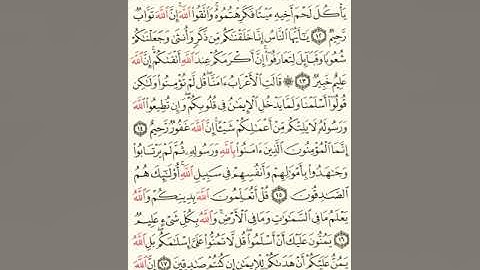 يَأْكُلَ لَحْمَ أَخِيهِ مَيْتًا فَكَرِهْتُمُوهُ ۚ وَاتَّقُوا اللَّهَ ۚ إِنَّ اللَّهَ تَوَّابٌ
رَّحِيمٌ ﴿١٢﴾ يَا أَيُّهَا النَّاسُ إِنَّا خَلَقْنَاكُم مِّن ذَكَرٍ وَأُنثَىٰ وَجَعَلْنَاكُمْ
شُعُوبًا وَقَبَائِلَ لِتَعَارَفُوا ۚ إِنَّ أَكْرَمَكُمْ عِندَ اللَّهِ أَتْقَاكُمْ ۚ إِنَّ اللَّهَ
عَلِيمٌ خَبِيرٌ ﴿١٣﴾ ۞ قَالَتِ الْأَعْرَابُ آمَنَّا ۖ قُل لَّمْ تُؤْمِنُوا وَلَٰكِن
قُولُوا أَسْلَمْنَا وَلَمَّا يَدْخُلِ الْإِيمَانُ فِي قُلُوبِكُمْ ۖ وَإِن تُطِيعُوا اللَّهَ
وَرَسُولَهُ لَا يَلِتْكُم مِّنْ أَعْمَالِكُمْ شَيْئًا ۚ إِنَّ اللَّهَ غَفُورٌ رَّحِيمٌ ﴿١٤﴾
إِنَّمَا الْمُؤْمِنُونَ الَّذِينَ آمَنُوا بِاللَّهِ وَرَسُولِهِ ثُمَّ لَمْ يَرْتَابُوا
وَجَاهَدُوا بِأَمْوَالِهِمْ وَأَنفُسِهِمْ فِي سَبِيلِ اللَّهِ ۚ أُولَٰئِكَ هُمُ
الصَّادِقُونَ ﴿١٥﴾ قُلْ أَتُعَلِّمُونَ اللَّهَ بِدِينِكُمْ وَاللَّهُ
يَعْلَمُ مَا فِي السَّمَاوَاتِ وَمَا فِي الْأَرْضِ ۚ وَاللَّهُ بِكُلِّ شَيْءٍ عَلِيمٌ
﴿١٦﴾ يَمُنُّونَ عَلَيْكَ أَنْ أَسْلَمُوا ۖ قُل لَّا تَمُنُّوا عَلَيَّ إِسْلَامَكُم ۖ بَلِ اللَّهُ
يَمُنُّ عَلَيْكُمْ أَنْ هَدَاكُمْ لِلْإِيمَانِ إِن كُنتُمْ صَادِقِينَ ﴿١٧﴾ إِنَّ اللَّهَ